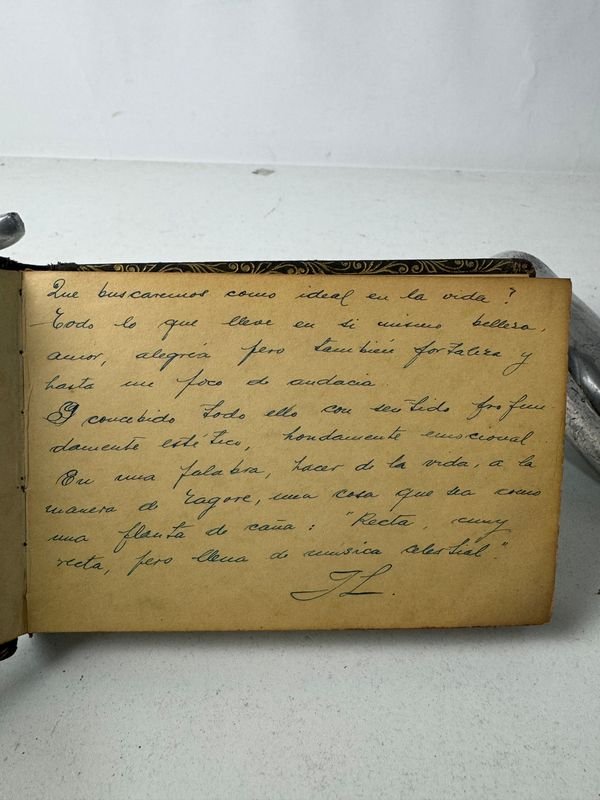 Que buscaremos como ideal en la vida?
Todo lo que lleve en si mismo belleza,
amor, alegría pero también fortaleza y
hasta un poco de audacia.
Y concebido todo ello con sentido profun-
damente estético, hondamente emocional.
En una palabra, hacer de la vida, a la
manera de Tagore, una cosa que sea como
una flauta de caña: "Recta, muy
recta, pero llena de música celestial."
JL.